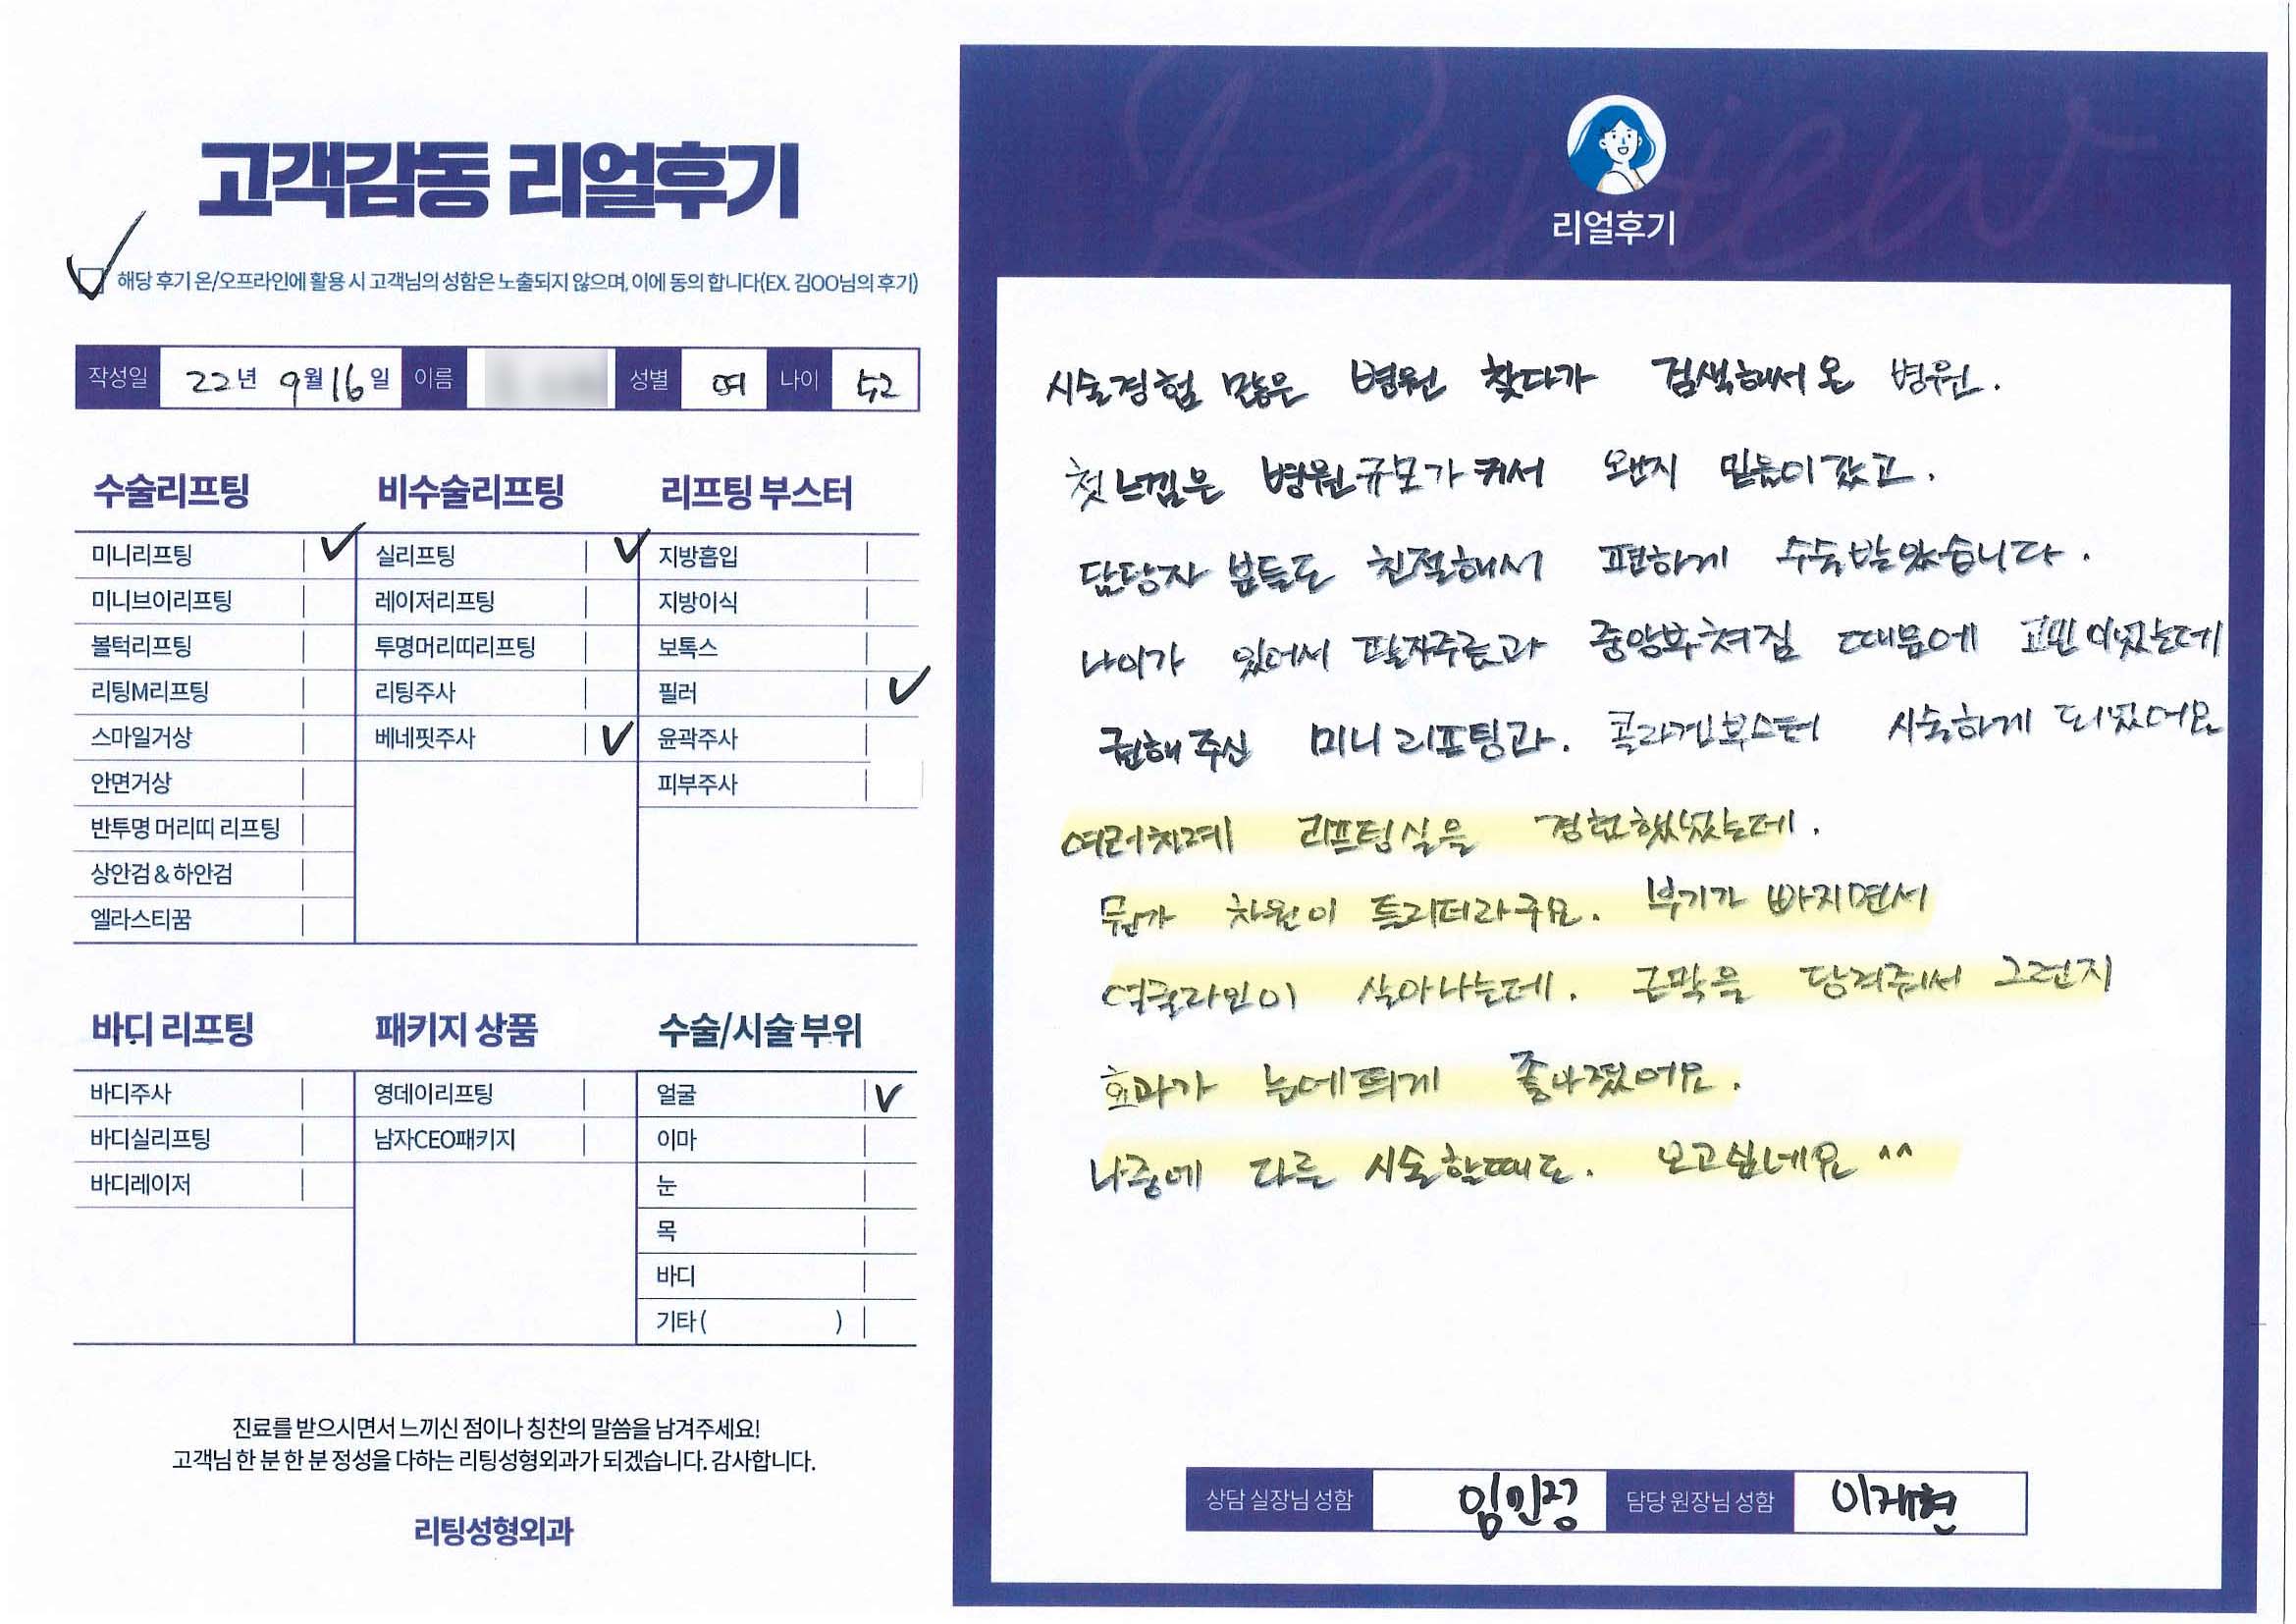 고객감동 리얼후기
해당 후기 온/오프라인에 활용 시 고객님의 성함은 노출되지 않으며, 이에 동의 합니다(EX. 김OO님의 후기)
작성일 22년 9월 16일 이름 성별 여 나이 52
수술리프팅
미니리프팅
미니브이리프팅
볼턱리프팅
리팅M리프팅
스마일거상
안면거상
반투명 머리띠 리프팅
상안검 & 하안검
엘라스티꿈
비수술리프팅
실리프팅
레이저리프팅
투명머리띠리프팅
리팅주사
베네핏주사
리프팅 부스터
지방흡입
지방이식
보톡스
필러
윤곽주사
피부주사
바디 리프팅
바디주사
바디실리프팅
바디레이저
패키지 상품
영데이리프팅
남자CEO패키지
수술/시술 부위
얼굴
이마
눈
목
바디
기타 ( )
진료를 받으시면서 느끼신 점이나 칭찬의 말씀을 남겨주세요!
고객님 한 분 한 분 정성을 다하는 리팅성형외과가 되겠습니다. 감사합니다.
리팅성형외과
Review
리얼후기
시술경험 많은 병원 찾다가 검색해서 온 병원.
첫느낌은 병원규모가 커서 왠지 믿음이 갔고.
담당자 분들도 친절해서 편하게 수술받았습니다.
나이가 있어서 팔자주름과 중앙부쳐짐 때문에 고민이였는데
권해주신 미니리프팅과. 콜라겐부스터 시술하게 되었어요
여러차례 리프팅실을 경험했었는데.
뭔가 차원이 틀리더라구요. 부기가 빠지면서
얼굴라인이 살아나는데. 근막을 당겨주서 그런지
효과가 눈에띄게 좋아졌어요.
나중에 다른 시술할때도. 오고싶네요 ^^
상담 실장님 성함 임민정 담당 원장님 성함 이재현